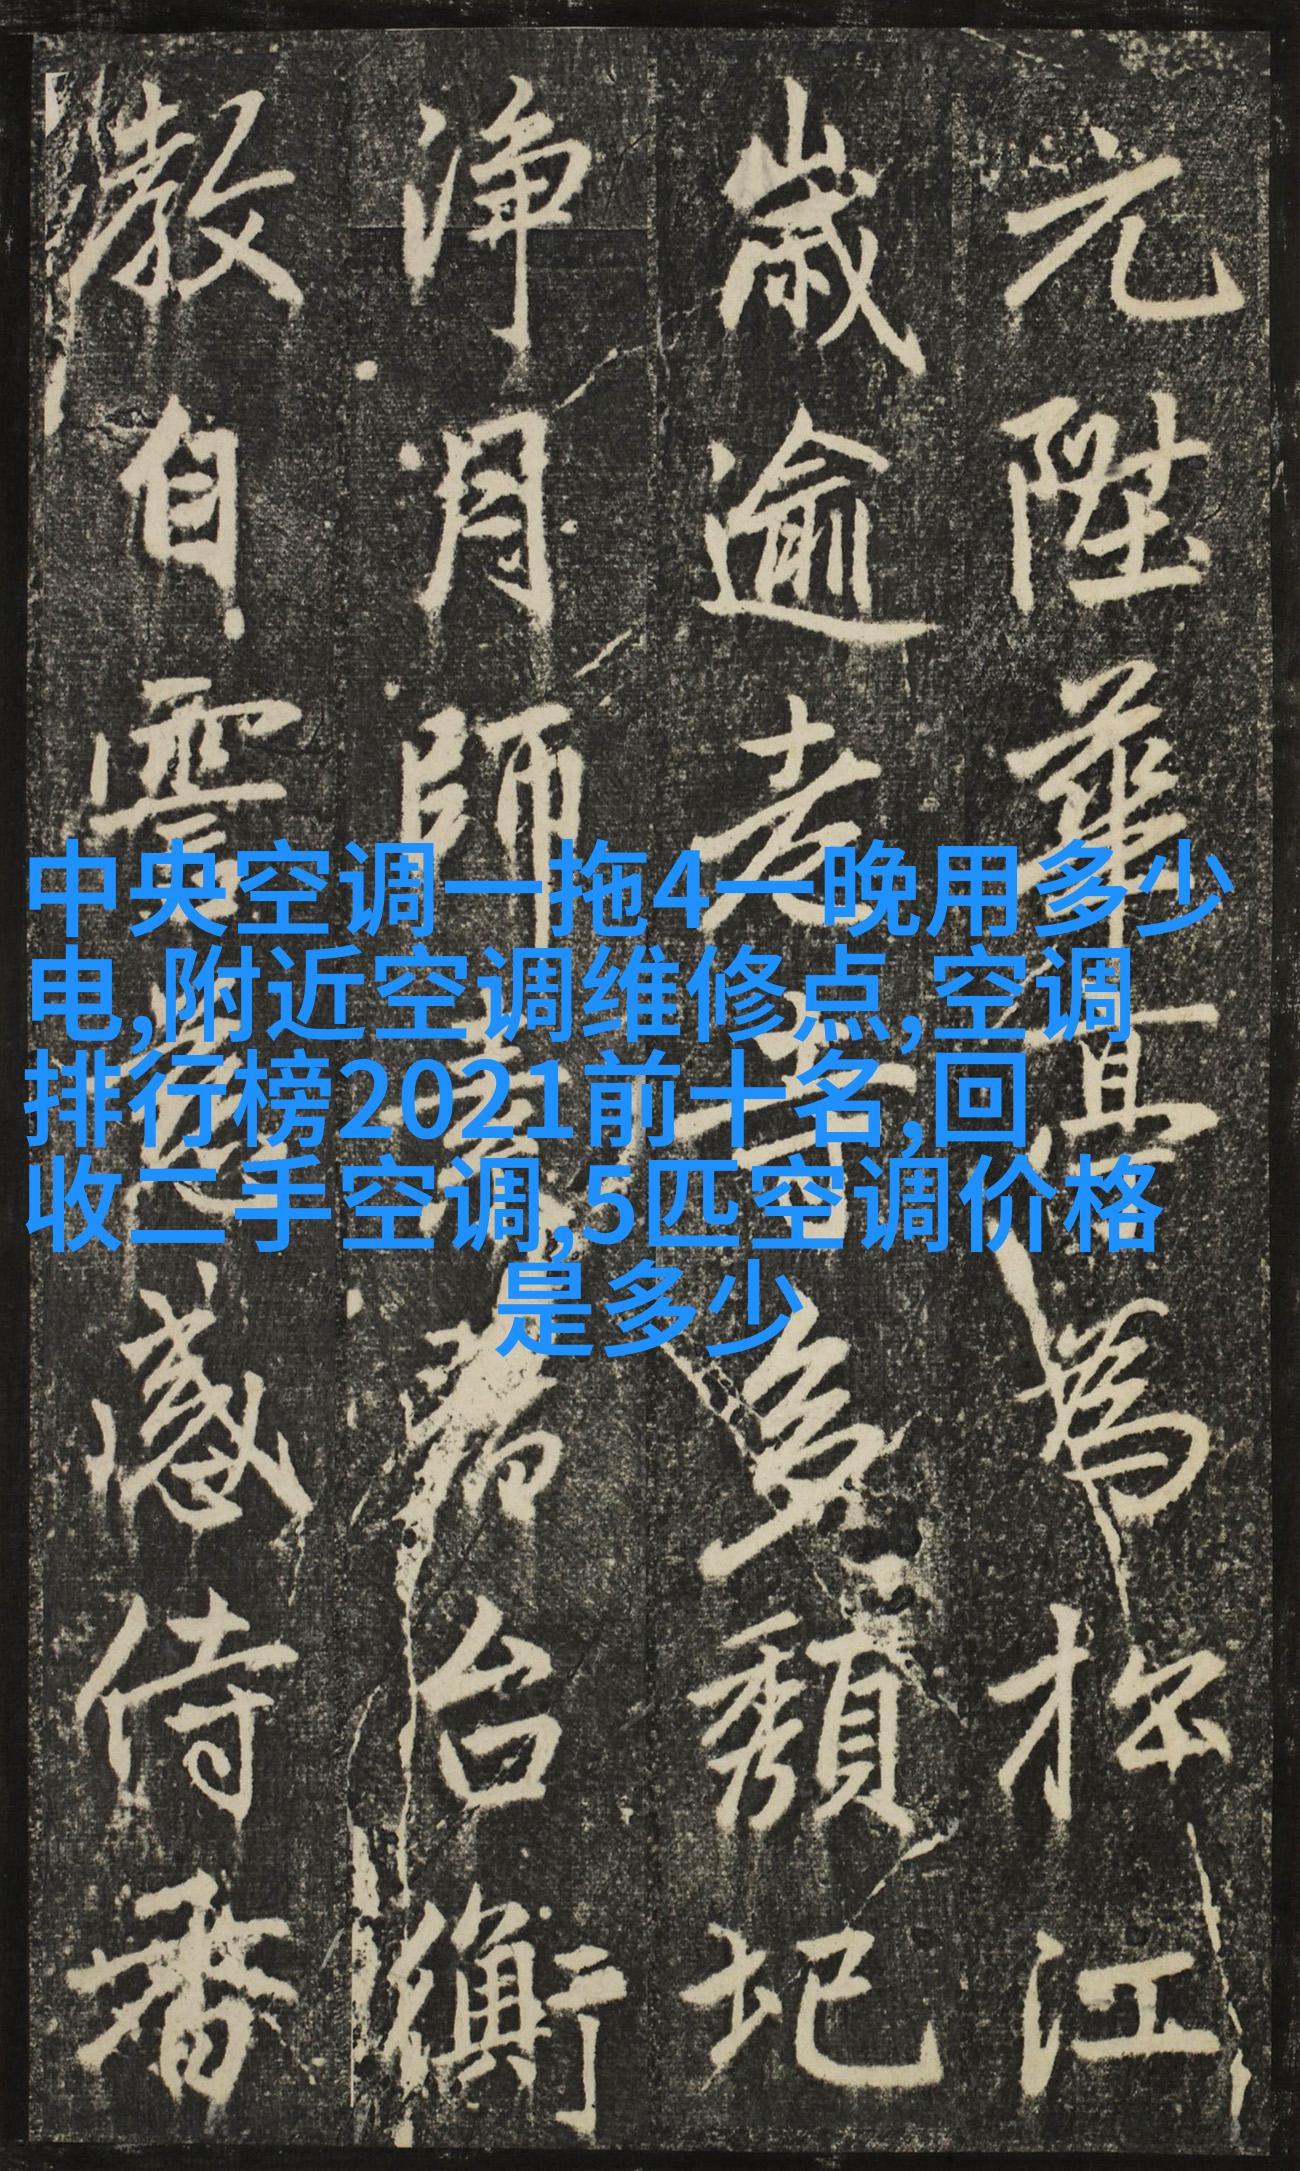 中央空调一拖4一晚用多少
电,附近空调维修点,空调
排行榜2021前十名,回
收二手空调,5匹空调价格
是多少
元陞華
為松江
歲逾老
多頹圮
淨月師
台衡
教自
感侍香